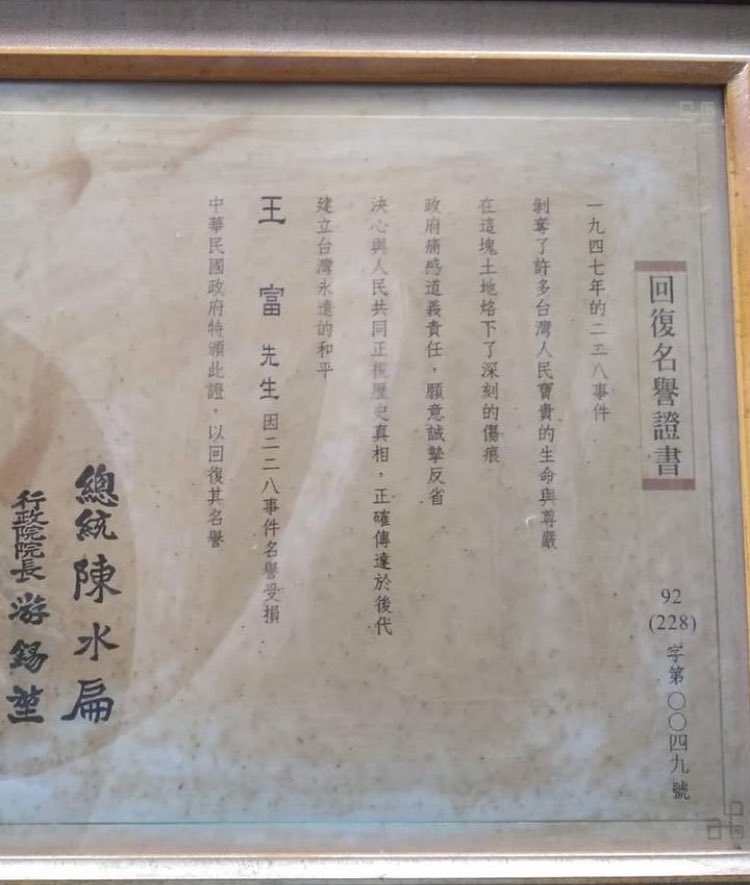 回復名譽證書
92
(228)
字第〇〇四九號
一九四七年的二二八事件
剝奪了許多台灣人民寶貴的生命與尊嚴
在這塊土地烙下了深刻的傷痕
政府痛感道義責任，願意誠摯反省
決心與人民共同正視歷史真相，正確傳達於後代
建立台灣永遠的和平
王富先生因二二八事件名譽受損
中華民國政府特頒此證，以回復其名譽
總統陳水扁
行政院院長游錫堃